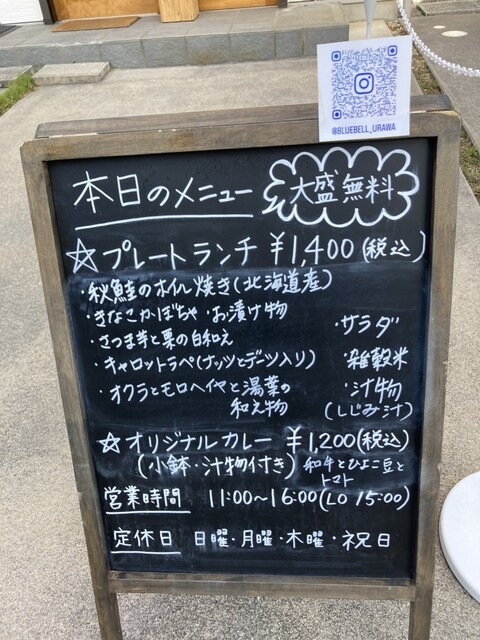 @BLUEBELL_URAWA
本日のメニュー
大盛無料
☆プレートランチ ¥1,400(税込)
・秋鮭のホイル焼き(北海道産)
・きなこかぼちゃ ・お漬け物
・さつま芋と栗の白和え
・キャロットラペ(ナッツとデーツ入り)
・オクラとモロヘイヤと湯葉の
和え物
・サラダ
・雑穀米
・汁物
(しじみ汁)
☆オリジナルカレー ¥1,200(税込)
(小鉢・汁物付き) 和牛とひよこ豆と
トマト
営業時間 11:00～16:00(LO 15:00)
定休日 日曜・月曜・木曜・祝日